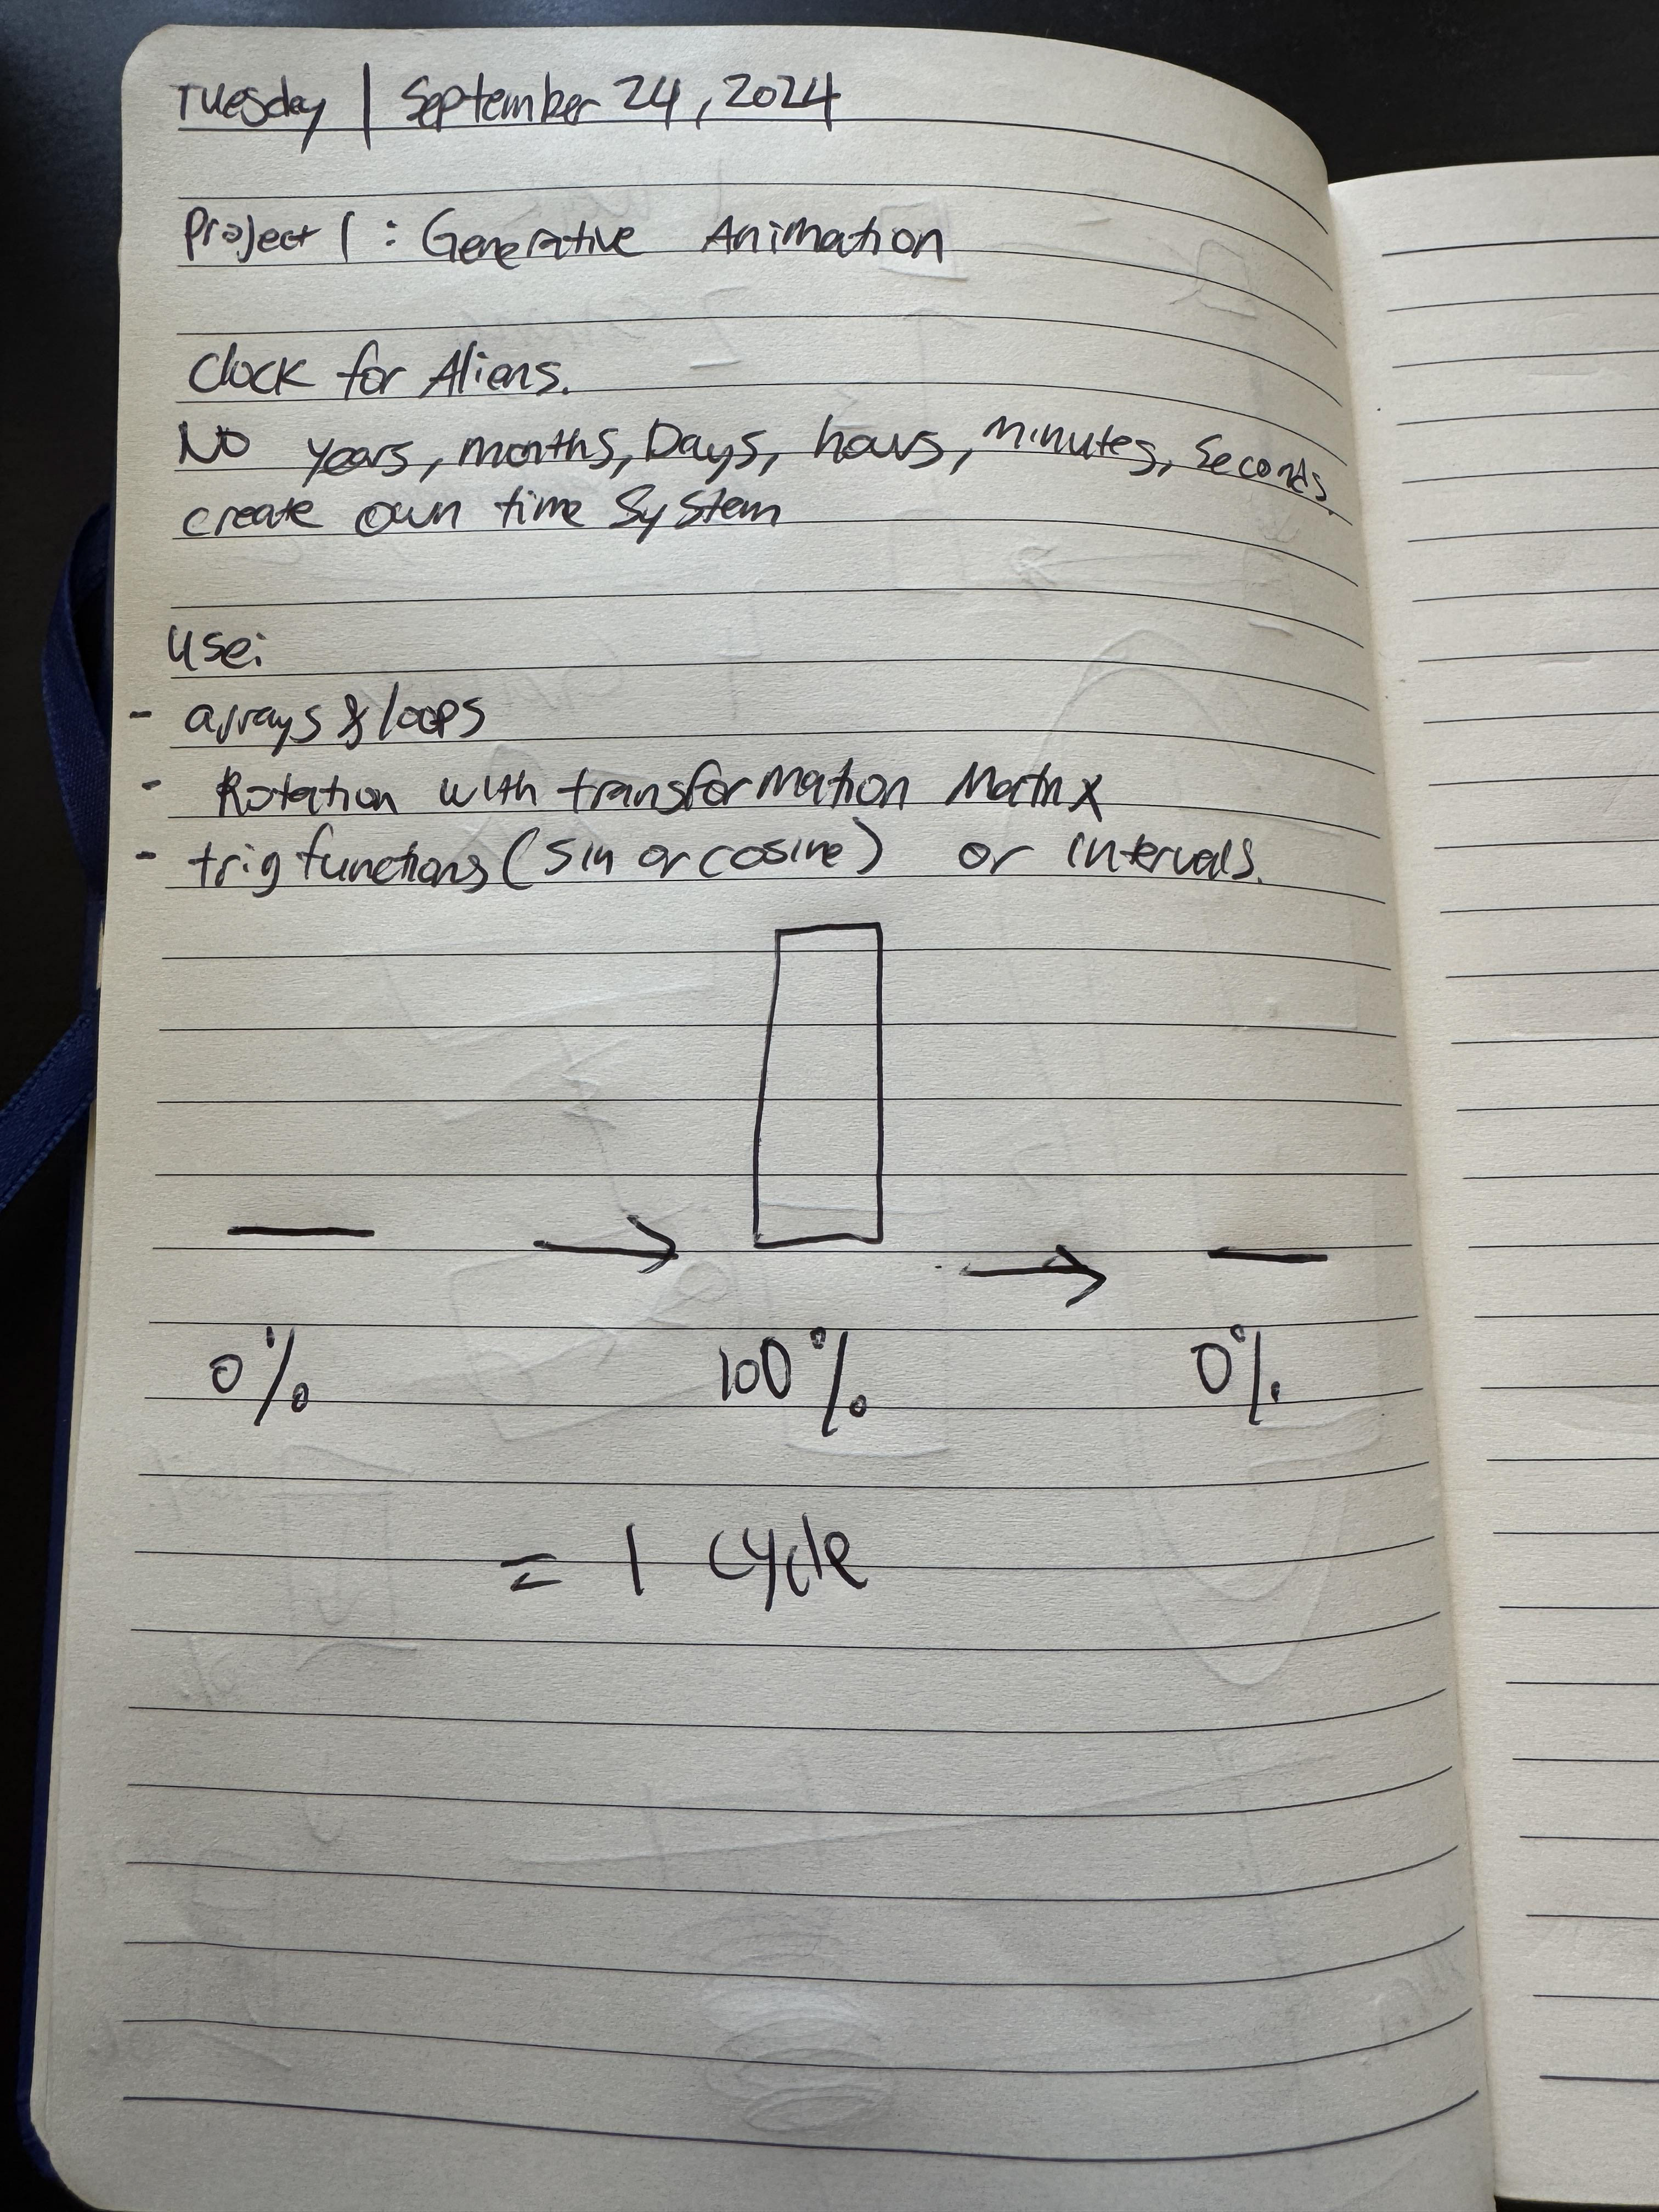 Tuesday | September 24, 2024
Project 1 : Generative Animation
Clock for Aliens.
No years, months, Days, hours, minutes, Seconds.
create own time System
Use:
- arrays & loops
- Rotation with transformation Matrix
- trig functions (sin or cosine) or intervals.
0% 100% 0%
= 1 cycle